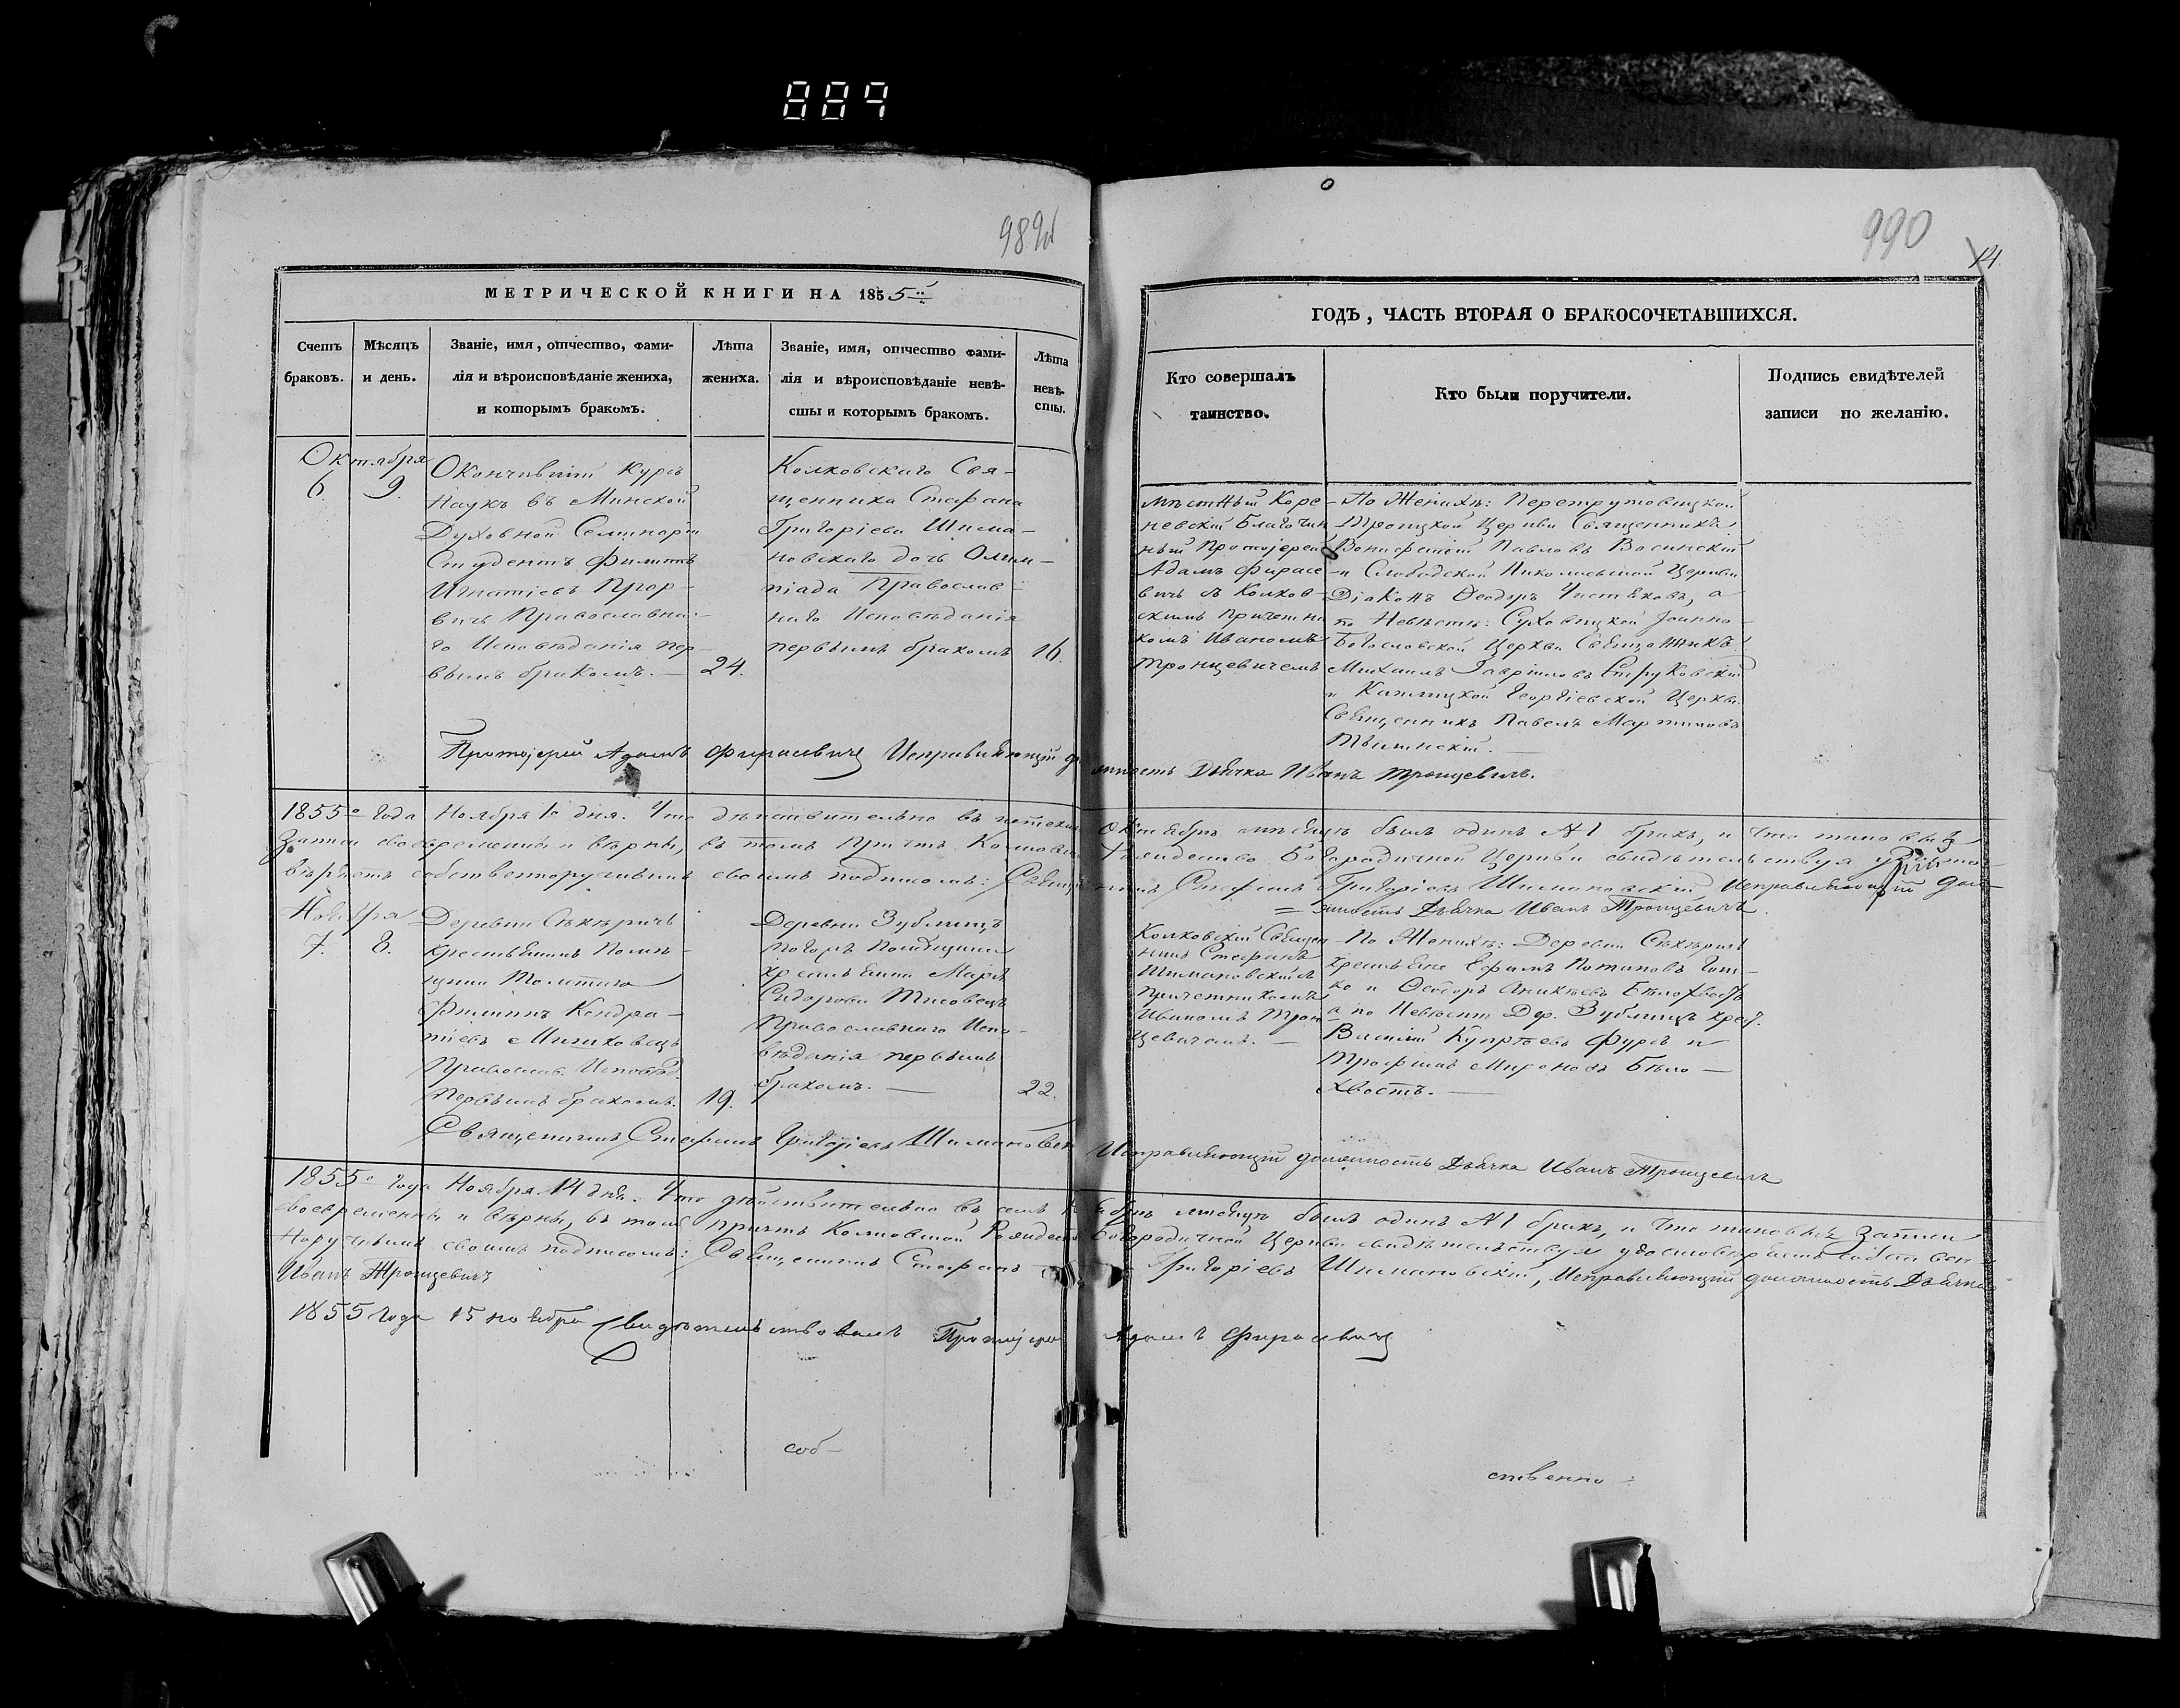 889
989об
990
14.
МЕТРИЧЕСКОЙ КНИГИ НА 1855й
Счетъ браковъ.
Мѣсяцъ и день.
Званіе, имя, отчество, фами-
лія и вѣроисповѣданіе жениха,
и которымъ бракомъ.
Лѣта
жениха.
Званіе, имя, отчество фами-
лія и вѣроисповѣданіе невѣ-
сты и которымъ бракомъ.
Лѣта
невѣ-
сты.
Октября
6. 9.
Окончившій курсъ
Наукъ въ Минской
Духовной Семинаріи
Студентъ Филиппъ
Игнатіевъ Прор-
вичъ Православна-
го Исповѣданія пер-
вымъ бракомъ. —
24.
Колковскаго Свя-
щенника Стефана
Григоріева Шима-
новскаго дочь Олим-
піада Православ-
наго Исповѣданія
первымъ бракомъ
16.
ГОДЪ, ЧАСТЬ ВТОРАЯ О БРАКОСОЧЕТАВШИХСЯ.
Кто совершалъ
таинство.
Кто были поручители.
Подпись свидѣтелей
записи по желанію.
мѣстный Коре
невскій Благочин
ный Протоіерей
Адамъ Фирасе
вичъ съ Колков-
скимъ причетни
комъ Иваномъ
Тронцевичемъ
По Женихѣ:
Троицкой Церкви Священникъ
Вонифатій Павловъ Васинскій
и Слободской Николаевской Церкви
Діаконъ Ѳеодоръ Чистяковъ, а
по Невѣстѣ: Суховицкой Іоанно-
Богословской Церкви Священникъ
Михаилъ Гавріиловъ Струковскій
и Георгіевской Церкви
Священникъ Павелъ Мартиновъ
Протоіерей Адамъ Фирасевичъ Исправляющій должность Дьячка Иванъ Тронцевичъ.
1855го Года Ноября 1го дня. Что дѣйствительно въ истекшемъ Октябрѣ мѣсяцѣ былъ одинъ № 1 бракъ, и что таковыя
Записи своевременны и вѣрны, въ томъ Причтъ Колковской Рождество Богородичной Церкви свидѣтельствуя удосто-
вѣряетъ собственноручнымъ своимъ подписомъ: Священникъ Стефанъ Григоріевъ Шимановскій Исправляющій дол-
жность Дьячка Иванъ Тронцевичъ.
Ноября
7. 8.
Деревни Сѣкѣричъ
крестьянинъ Помѣ-
щика
Филиппъ Кондра-
тіевъ
Православ. Исповѣд.
Первымъ бракомъ.
19.
Деревни Зублищъ
тогожъ помѣщика
крестьянка Марѳа
Сидорова
Православнаго Испо-
вѣданія первымъ
бракомъ. —
22.
Колковскій Священ
никъ Стефанъ
Шимановскій съ
причетникомъ
Иваномъ Трон
цевичемъ. —
По Женихѣ: Деревни Сѣкѣричъ
крестьяне Ефимъ Потаповъ
и Ѳеодоръ Аникѣевъ Бѣлохвостъ
а по Невѣстѣ Дер. Зублищъ крест.
Василій Фурсъ и
Трофимъ Мироновъ Бѣло-
хвостъ. —
Священникъ Стефанъ Григоріевъ Шимановскій Исправляющій должность Дьячка Иванъ Тронцевичъ
1855го Года Ноября 14 дня. Что дѣйствительно въ семъ Ноябрѣ мѣсяцѣ былъ одинъ № 1 бракъ, и что таковыя Записи
своевременны и вѣрны, въ томъ Причтъ Колковской Рождество Богородичной Церкви свидѣтельствуя удостовѣряетъ собствен-
норучнымъ своимъ подписомъ: Священникъ Стефанъ Григоріевъ Шимановскій, Исправляющій должность Дьячка
Иванъ Тронцевичъ
1855 Года 15 ноября Свидѣтельствовалъ Протоіерей Адамъ Фирасевичъ
соб-
ственно-